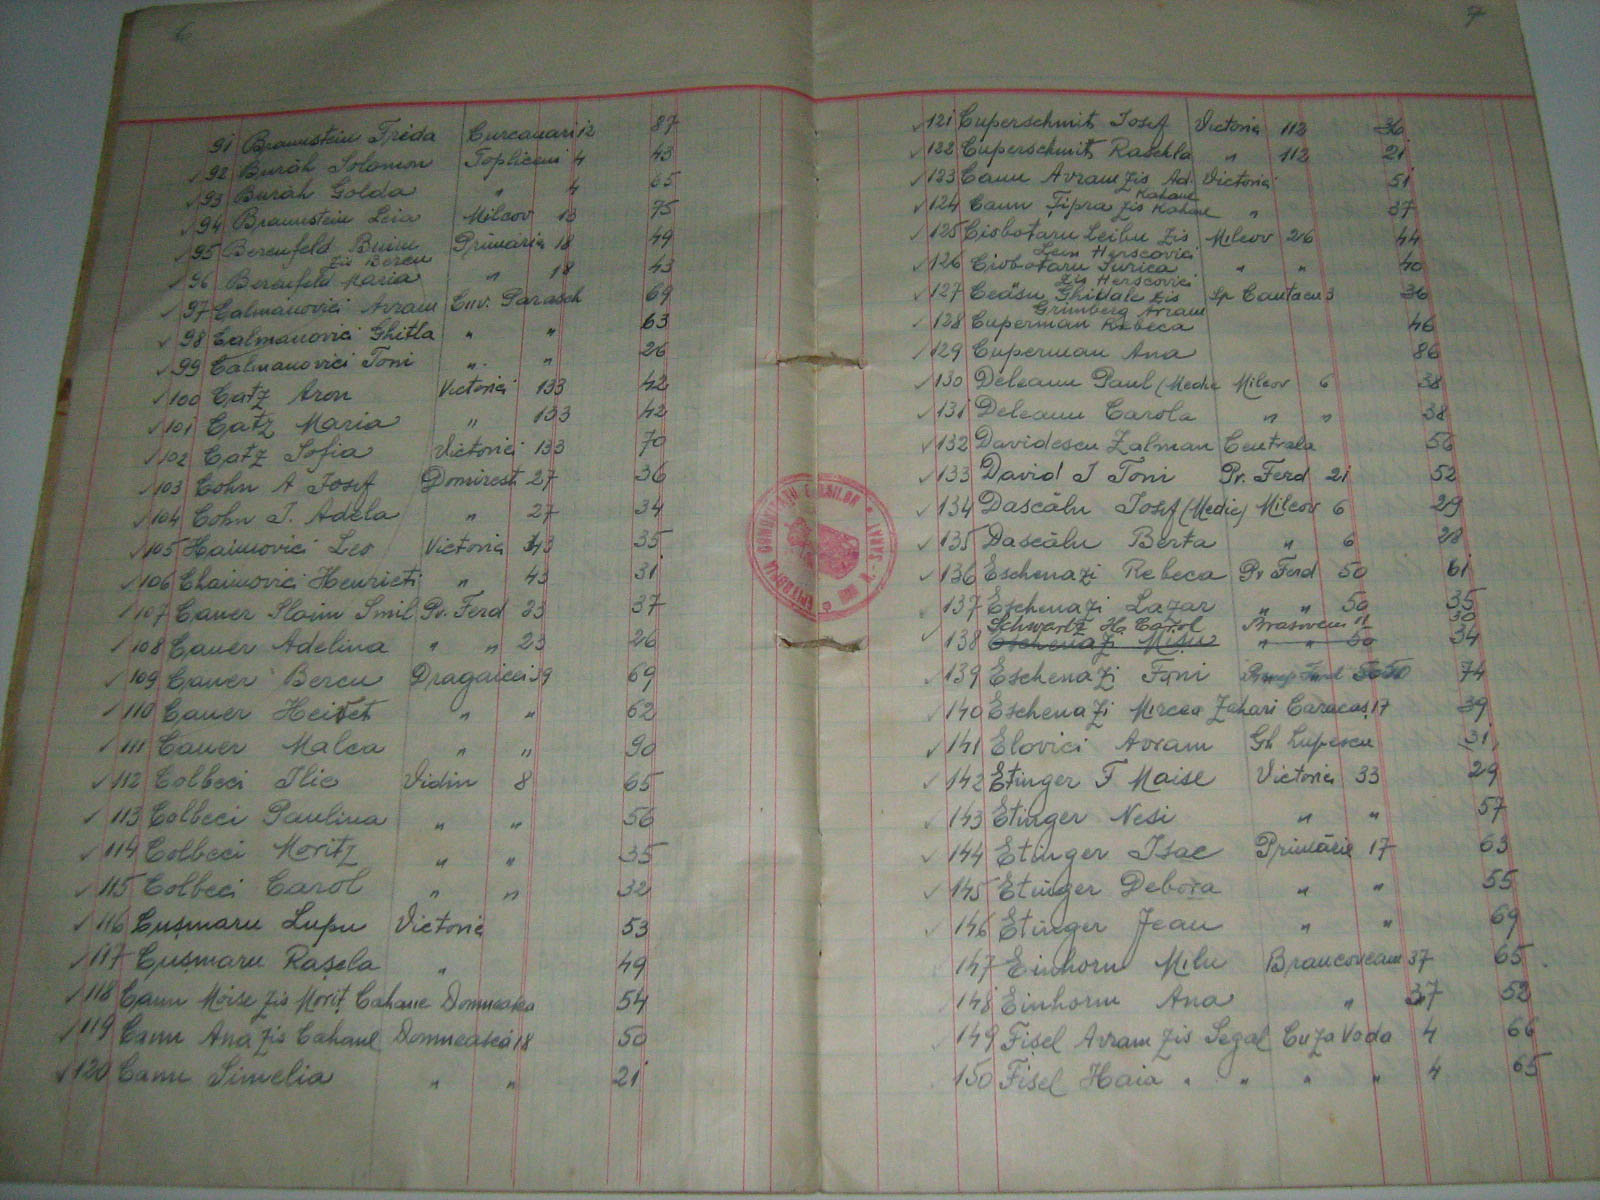 6
91 Braunstein Frida Curcanari 12 87
92 Burăh Solomon Topliceni 4 43
93 Burăh Golda " 4 65
94 Braunstein Leia Milcov 13 75
95 Berenfeld Buiu Primăria 18 49
zis Bercu
96 Berenfeld Maria " 18 43
97 Calmanovici Avram Cuv. Parasch 69
98 Calmanovici Ghitla " " 63
99 Calmanovici Toni " " 26
100 Catz Aron Victoria 133 42
101 Catz Maria " 133 42
102 Catz Sofia Victoria 133 70
103 Cohn A Iosef Domirest 27 36
104 Cohn I. Adela " 27 34
105 Haimovici Leo Victoria 43 35
106 Chaimovici Henrieti " 43 31
107 Cauer Slaim Smil Pr. Ferd 23 37
108 Cauer Adelina " " 23 26
109 Cauer Bercu Dragaicei 39 69
110 Cauer Heitet " " 62
111 Cauer Malca " " 90
112 Colbeci Ilie Vidin 8 65
113 Colbeci Paulina " " 56
114 Colbeci Moritz " " 35
115 Colbeci Carol " " 32
116 Cușmaru Lupu Victoria 53
117 Cușmaru Rașela " 49
118 Canu Moise zis Moriț Cahane Domneasca 54
119 Canu Ana zis Cahane Domnească 18 50
120 Canu Simelia " " 21
7
121 Cuperschmit Iosef Victoria 112 36
122 Cuperschmit Raschla " 112 21
123 Canu Avram zis Ad. Victoria 51
Kahane
124 Canu Țipra zis Kahane " 37
125 Ciobotaru Leibu zis Milcov 26 44
Herscovici
126 Ciobotaru Surica " " 40
zis Herscovici
127 Ceasu Ghidale zis Sp Cantacu 3 36
Grunberg Avram
128 Cuperman Rebeca 46
129 Cuperman Ana 86
130 Deleanu Paul (Medic Milcov 6 38
131 Deleanu Carola " " 38
132 Davidescu Zalman Centrala 56
133 David I Toni Pr. Ferd 21 52
134 Dascălu Iosef (Medic) Milcov 6 29
135 Dascălu Berta " 6 28
136 Eschenazi Rebeca Pr Ferd 50 61
137 Eschenazi Lazar " " 50 35
Schwartz H. Carol Brasoveni 11 30
138 Eschenazi Mișu " " 50 34
139 Eschenazi Fani 50 74
140 Eschenazi Mircea Zahari Caracaș 17 39
141 Elovici Avram Gh Lupescu 31
142 Etinger F Maise Victoria 33 29
143 Etinger Nesi " " 57
144 Etinger Isac Primărie 17 63
145 Etinger Debora " " 55
146 Etinger Jean " " 69
147 Einhorn Milu Brancoveanu 37 65
148 Einhorn Ana " 37 52
149 Fișel Avram zis Segal Cuza Voda 4 66
150 Fișel Haia " " " " 4 65